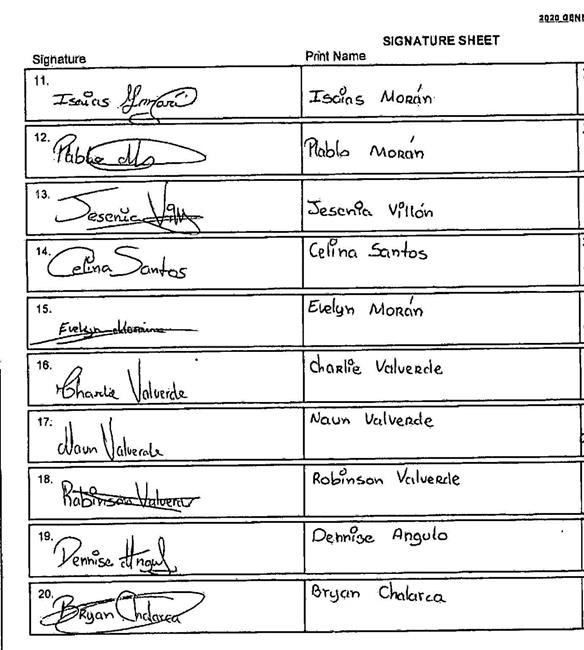 2020 GENE
SIGNATURE SHEET
Signature Print Name
11. Isaias Isaias Morán
12. Pablo Plablo Morán
13. Jesenia Jesenia Villón
14. Celina Santos Celina Santos
15. Evelyn Evelyn Morán
16. Charlie Valverde Charlie Valverde
17. Naun Valverde Naun Valverde
18. Robinson Valverde Robinson Valverde
19. Dennise Angulo Dennise Angulo
20. Bryan Chalarca Bryan Chalarca